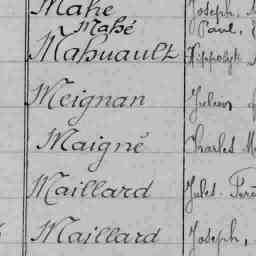 Mahé Joseph,
Mahé Paul,
Mahuault Hippolyte
Meignan Julien
Maigné Charles
Maillard Jules
Maillard Joseph,